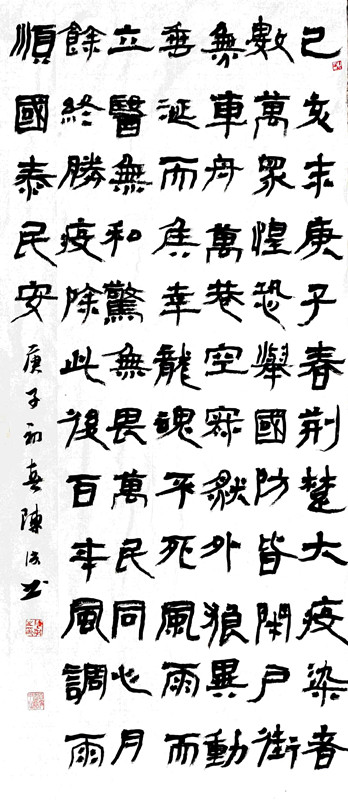 己亥末庚子春荆楚大疫染者
數萬眾惶恐舉國防皆閉戶街
無車舟萬巷空寂然外狼異動
垂涎而幸龍魂不死風雨而
立醫無私驚無畏萬民同心月
餘終勝疫除此後百年風調雨
順國泰民安
庚子初春陳书